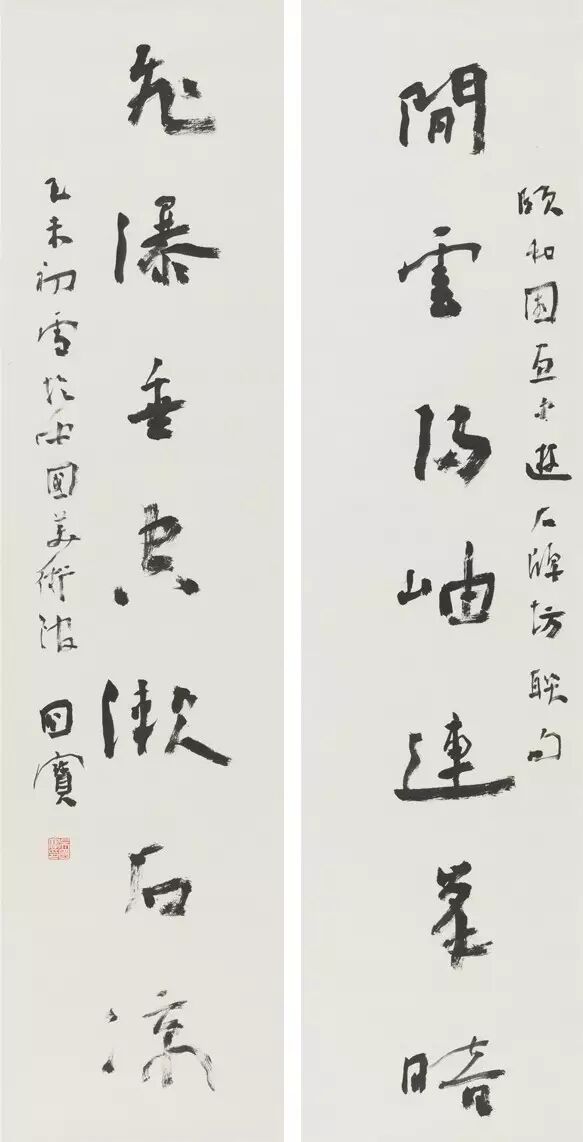 頤和園画中遊石牌坊聯句
閒雲歸岫連峯暗
飛瀑垂空漱石涼
乙未初雪於中國美術館 国寶